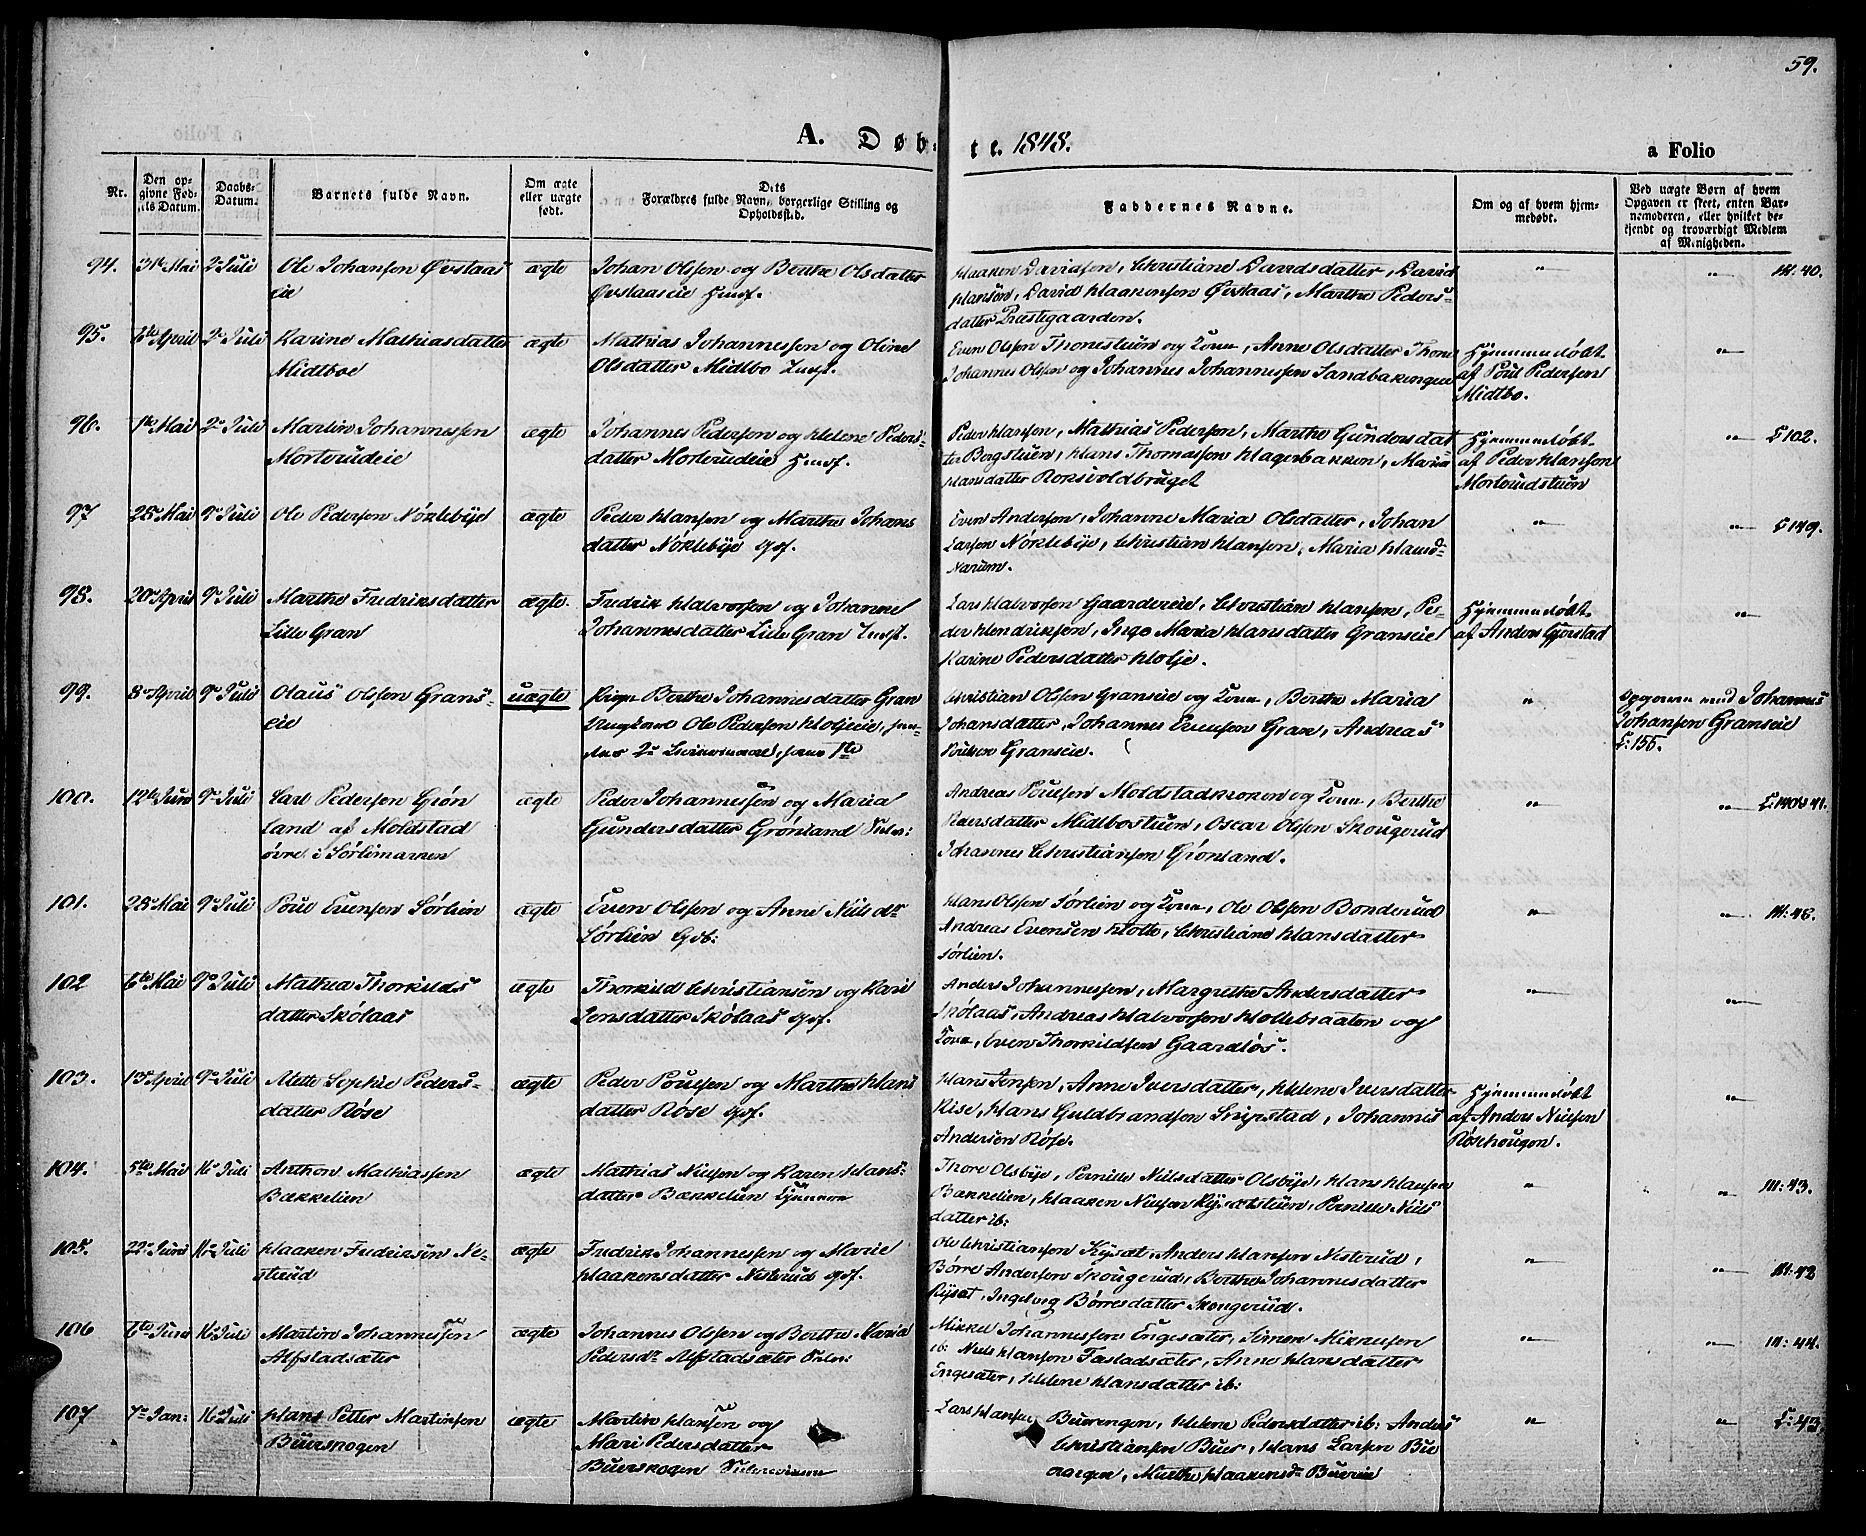 59.
A. Døb-
te. 1848.
a Folio
Nr.
Den op-
givne Fød-
sels Datum.
Daabs-
Datum.
Barnets fulde Navn.
Om ægte
eller uægte
født.
Dets
Forældres fulde Navn, borgerlige Stilling og
Opholdssted.
Faddernes Navne.
Om og af hvem hjem-
medøbt.
Ved uægte Børn af hvem
Opgaven er skeet, enten Bar-
nemoderen, eller hvilket be-
kjendt og troværdigt Medlem
af Menigheden.
94. 31te Mai 2 Juli Ole Johansen Øvstaas
eie
ægte
Johan Olsen og Berthe Olsdatter
Øvstaaseie Huusf.
Haaken Davidsen, Christiane Davidsdatter, David
Hansen, David Haakensen Øvstaas, Marthe Peders-
datter Præstegaarden.
" " M. 40.
95. 6te April 2 Juli Karine Mathiasdatter
Midtboe
ægte
Mathias Johannessen og Oline
Olsdatter Midtbo
Even Olsen Thonestuen og Kone, Anne Olsdatter Thone
Johannes Olssen og Johannes Johannessen Sandbakengen
Hjemmedøbt
af Poul Pedersen
Midtbo.
"
96. 1te Mai 2 Juli Martin Johannessen
Morterudeie
ægte
Johannes Pedersen og Helene Peders-
datter Morterudeie Huusf.
Peder Hansen, Mathias Pedersen, Marthe Gundersdat
ter Bergstuen, Hans Thomassen Hagerbakken, Maria
Hansdatter Roksvoldbruget
Hjemmedøbt
af Peder Hansen
Morterudstuen
" L 102.
97 28 Mai 9 Juli Ole Pedersen Nøklebye
ægte
Peder Hansen og Marthe Johans
datter Nøklebye
Even Andersen, Johanne Maria Olsdatter, Johan
Larsen Nøklebye, Christian Hansen, Maria Hansd-
Narum.
" " L 149.
98. 20 April 9 Juli Marthe Fredriksdatter
Lille Gran
ægte.
Fredrik Halvorsen og Johanne
Johannesdatter Lille Gran
Lars Halvorsen Gaardereie, Christian Hansen, Pe-
der Hendriksen, Inge Maria Hansdatter Granseie
Karine Pedersdatter Holje.
Hjemmedøbt
af Anders Gjerstad
"
99. 8 April 9 Juli Olaus Olsen Grans-
eie
uægte
Pigen Berthe Johannesdatter Gran
Ungkarl Ole Pedersen Holjeeie,
Christian Olssen Granseie og Kone, Berthe Maria
Johansdatter, Johannes Evensen Gran, Andreas
Poulsen Granseie.
"
Johannes
Johansen Granseie
L: 155.
100. 12te Juni 9 Juli Carl Pedersen Grøn
land af Moldstad
øvre i Sørlimarken
ægte
Peder Johannessen og Maria
Gundersdatter Grønland
Andreas Poulsen Moldstadkroken og Kone, Berthe
Pedersdatter Midtbostuen, Oscar Olssen Skougerud
Johannes Christiansen Grønland.
" "
101. 28 Mai 9 Juli Poul Evensen Sørlien
ægte
Even Olssen og Anne Niels Dr
Sørlien Gdb:
Hans Olssen Sørlien og Kone, Ole Olssen Bonderud
Andreas Evensen Holte, Christiane Hansdatter
Sørlien.
" " M: 48.
102 6te Mai 9 Juli Mathea Thorkilds
datter Skólaas
ægte
Thorkild Christiansen og Kari
Jensdatter Skólaas
Anders Johannessen, Margrethe Andersdatter
Skólaas, Andreas Halvorsen Hollebraaten og
Kone, Even Thorkildsen Gaardløs.
" "
103. 13 April 9 Juli Mette Sophie Peders-
datter Røse
ægte
Peder Poulsen og Marthe Hans
datter Røse
Hans Jensen, Anne Iversdatter, Helene Iversdatter
Rise, Hans Guldbrandsen Svigestad, Johannes
Andersen Røse.
Hjemmedøbt
af Anders Nielsen
Røsehougen.
"
104. 5te Mai 16 Juli Anthon Mathiassen
Bækkelien
ægte
Mathias Nielsen og Karen Hans-
datter Bækkelien
Thore Olsbye, Pernille Nielsdatter Olsbye, Hans Hansen
Bækkelien, Haaken Nielsen Rysætstuen, Pernille Niels
datter ib:
" " M: 43.
105. 22 Juni 16 Juli Haaken Fredriksen Ne-
sterud
ægte
Fredrik Johannessen og Marie
Haakensdatter Nesterud
Ole Christiansen Rysæt, Anders Hansen Nesterud,
Børre Andersen Skougerud, Berthe Johannesdatter
Rysæt, Ingeborg Børresdatter Skougerud.
" " M: 42
106 6te Juni 16 Juli Martin Johannessen
Alfstadsæter
ægte
Johannes Olssen og Berthe Maria
Pedersdr Alfstadsæter
Mikkel Johannessen Engesæter, Simen Mikkelsen
ib: Niels Hansen Fastadsæter, Anne Hansdatter
Engesæter, Helene Hansdatter ib:
" " M: 44.
107 7 Jan: 16 Juli Hans Petter Martinsen
Buerskogen
ægte
Martin Hansen og
Mari Pedersdatter
Buerskogen
Lars Hansen Buerengen, Helene Pedersdatter ib: Anders
Christiansen Buer, Hans Larsen Bue
rengen, Marthe Haakensdr Buereie
" " L: 43.